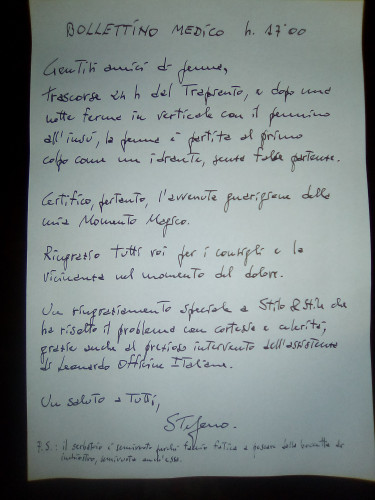 BOLLETTINO MEDICO h. 17:00
Gentili amici di penna,
trascorse 24 h dal Trapianto, e dopo una
notte ferma in verticale con il pennino
all'insù, la penna è partita al primo
colpo come un idrante, senza false partenze.
Certifico, pertanto, l'avvenuta guarigione della
mia Momento Magico.
Ringrazio tutti voi per i consigli e la
vicinanza nel momento del dolore.
Un ringraziamento speciale a Stilo & Stile che
ha risolto il problema con cortesia e celerità,
grazie anche al prezioso intervento dell'assistenza
di Leonardo Officina Italiana.
Un saluto a tutti,
Stefano.
P.S.: il serbatoio è semivuoto perché faccio fatica a pescare dalla boccetta di
inchiostro, semivuota anch'essa.